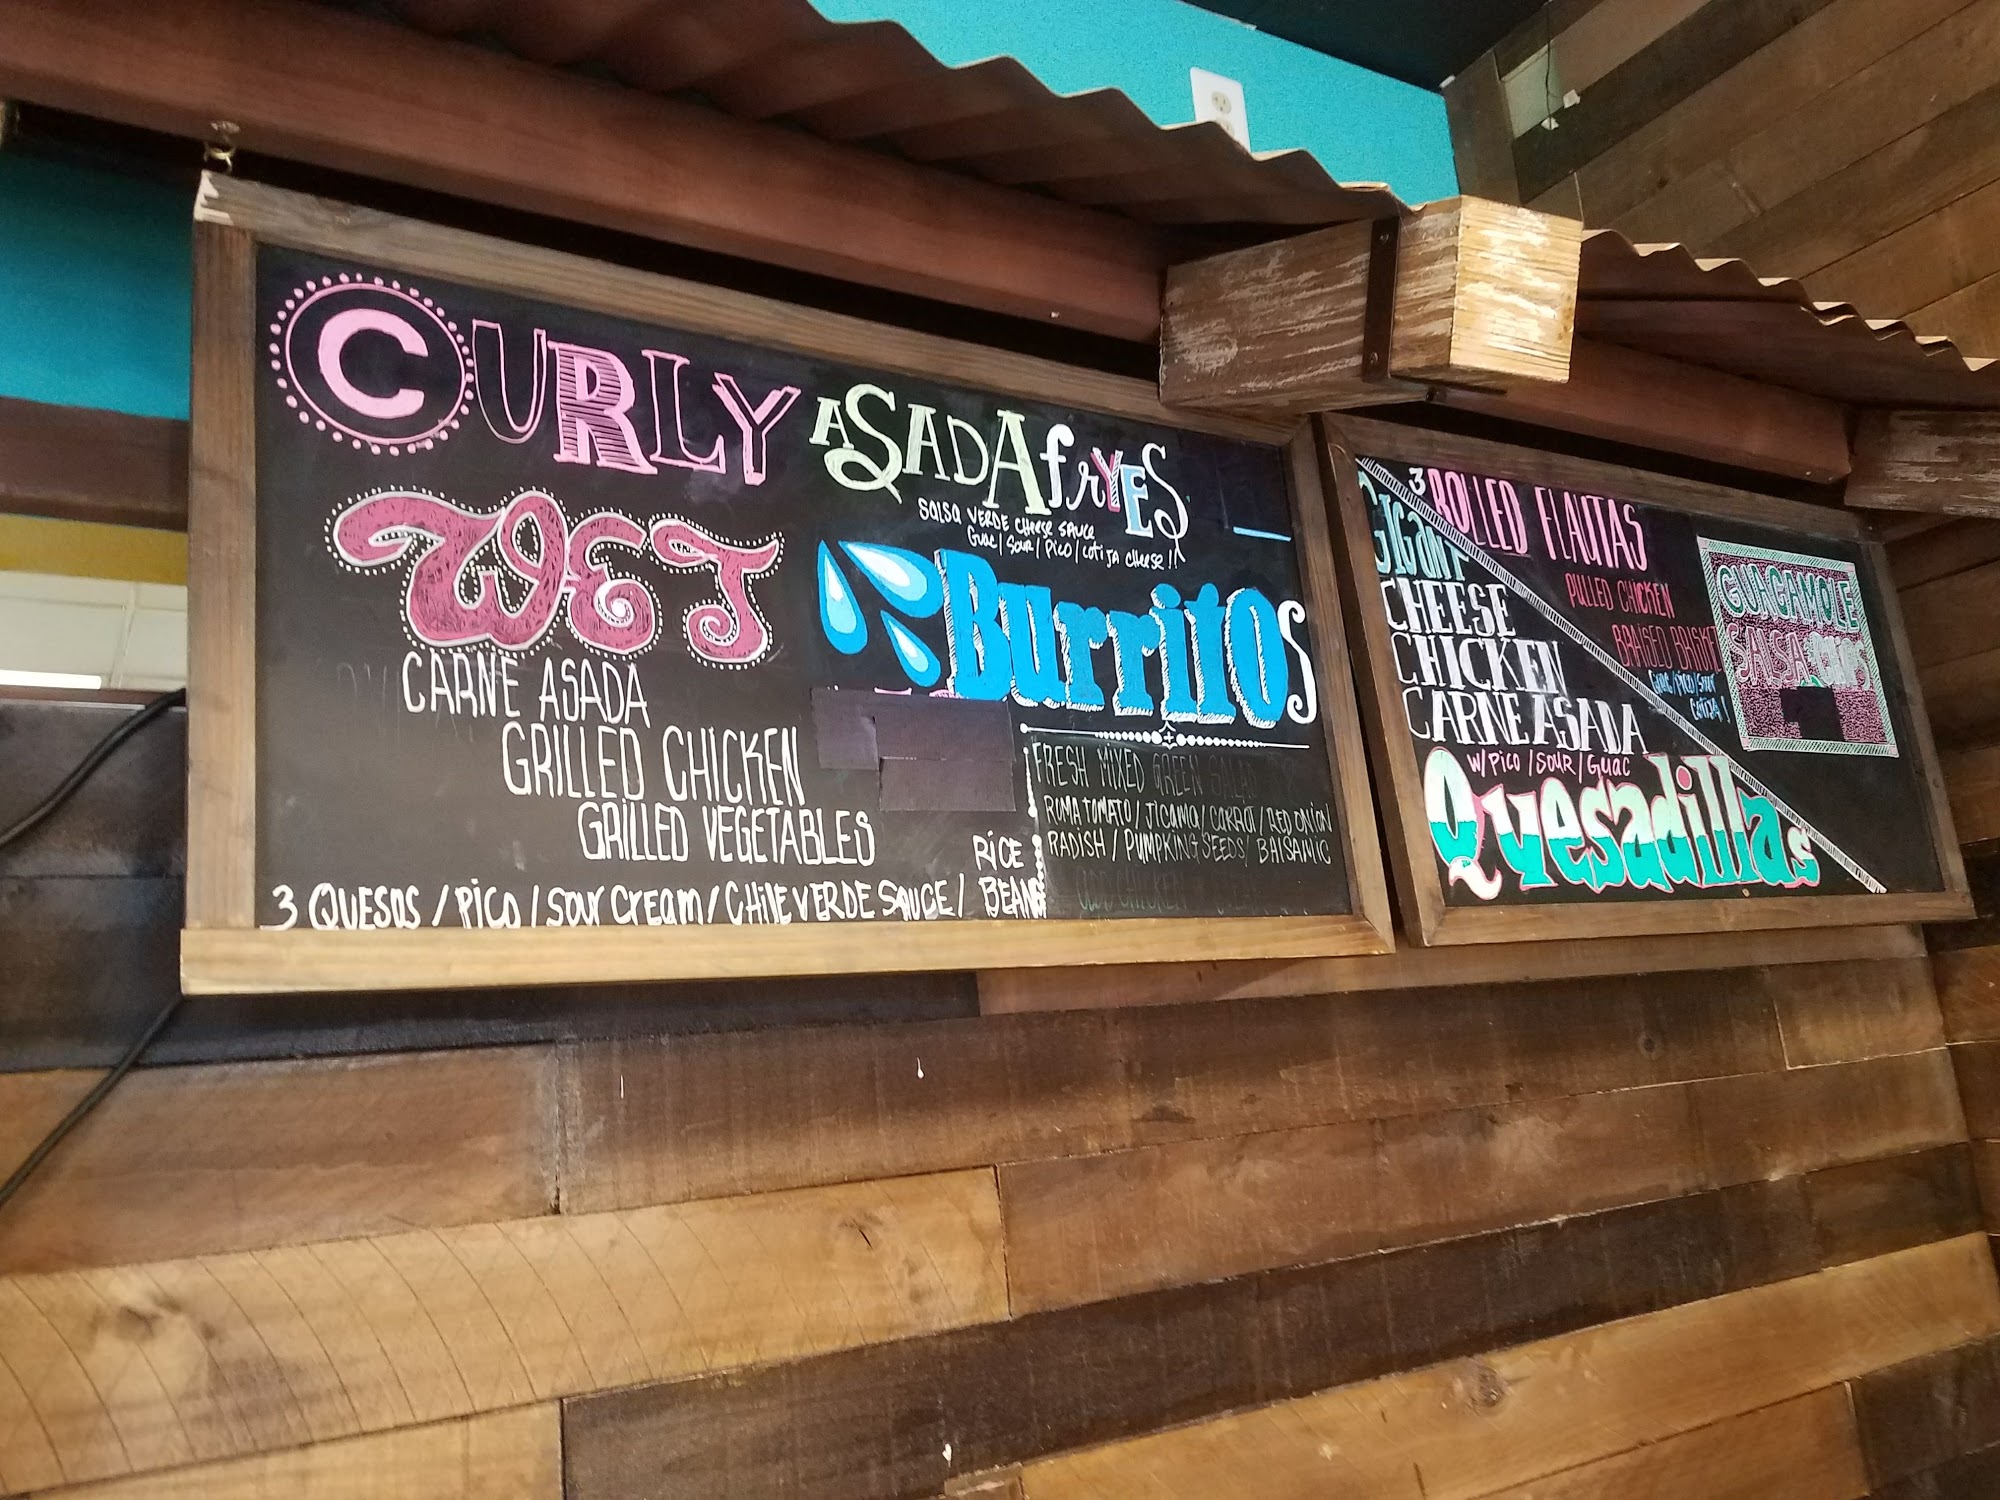 CURLY ASADA fRYES
SALSA VERDE CHEESE SAUCE
GUAC / SOUR / PICO / COTIJA CHEESE !!
WET Burritos
CARNE ASADA
GRILLED CHICKEN
GRILLED VEGETABLES
3 QUESOS / PICO / SOUR CREAM / CHILE VERDE SAUCE / RICE BEANS
FRESH MIXED GREEN SALAD
ROMA TOMATO / JICAMA / CARROT / RED ONION
RADISH / PUMPKING SEEDS / BALSAMIC
3 ROLLED FLAUTAS
PULLED CHICKEN
BRAISED BRISKET
GUAC / PICO / SOUR
COTIJA !
GIGANT
CHEESE
CHICKEN
CARNE ASADA
W/ PICO / SOUR / GUAC
Quesadillas
GUAGAMOLE
SALSA CHIPS